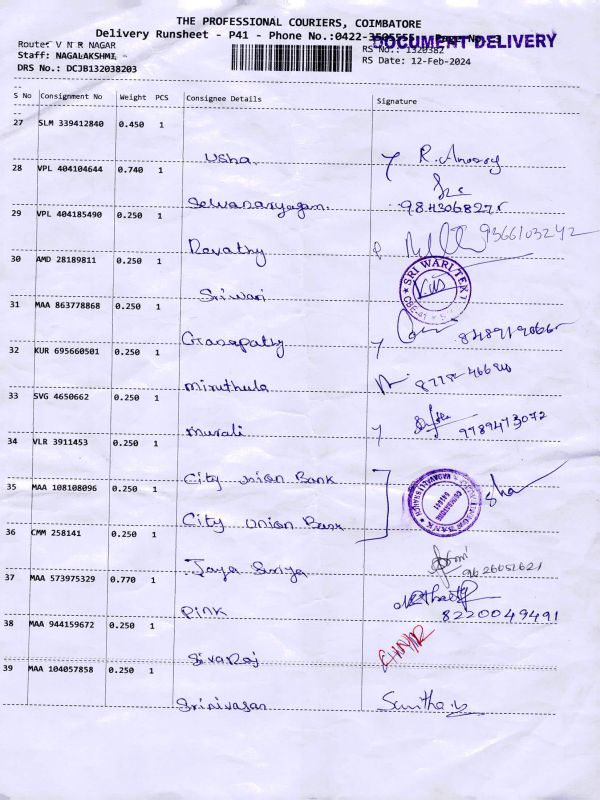 THE PROFESSIONAL COURIERS, COIMBATORE
Delivery Runsheet - P41 - Phone No.:0422-3505555 Page No. 3
DOCUMENT DELIVERY
Route: V N R NAGAR
RS No.: 1320382
Staff: NAGALAKSHMI -
RS Date: 12-Feb-2024
DRS No.: DCJB132038203
S No Consignment No Weight PCS Consignee Details Signature
27 SLM 339412840 0.450 1
Usha R.
28 VPL 404104644 0.740 1
Selvanayagam
29 VPL 404185490 0.250 1
Revathy 9366103242
30 AMD 28189811 0.250 1
Sriwari SRI WARI
31 MAA 863778868 0.250 1
Ganapathy
32 KUR 695660501 0.250 1
Miruthula
33 SVG 4650662 0.250 1
Murali 9789473072
34 VLR 3911453 0.250 1
City Union Bank
35 MAA 108108096 0.250 1
City Union Bank
36 CMM 258141 0.250 1
Jaya Suriya 9626052621
37 MAA 573975329 0.770 1
Pink 8220049491
38 MAA 944159672 0.250 1
Sivaraj
39 MAA 104057858 0.250 1
Srinivasan Sunitha